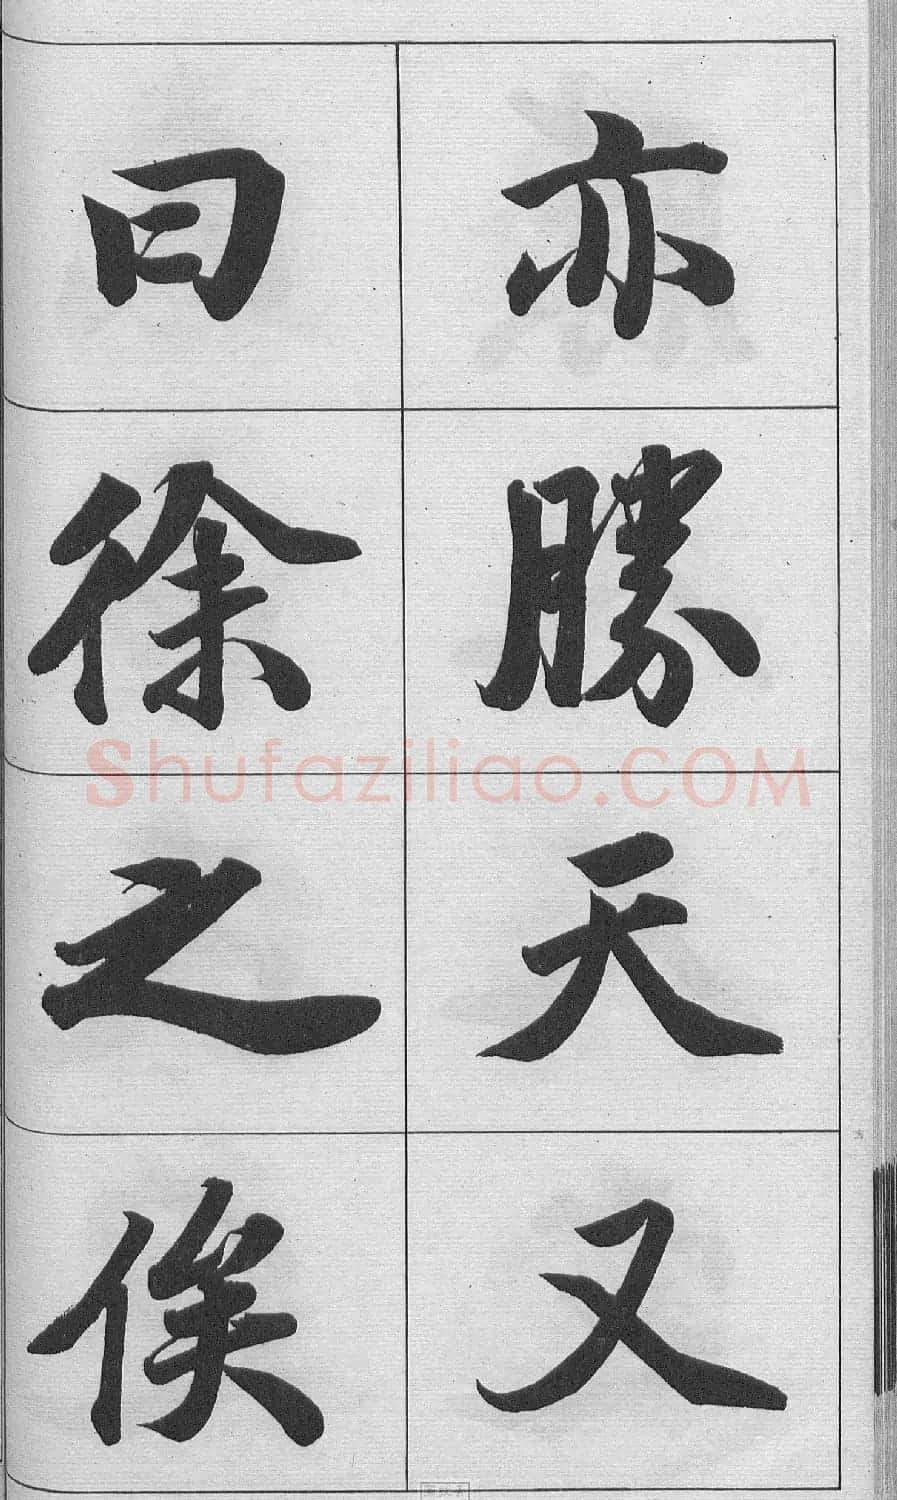 亦勝天又
曰徐之俟
Shufaziliao.COM